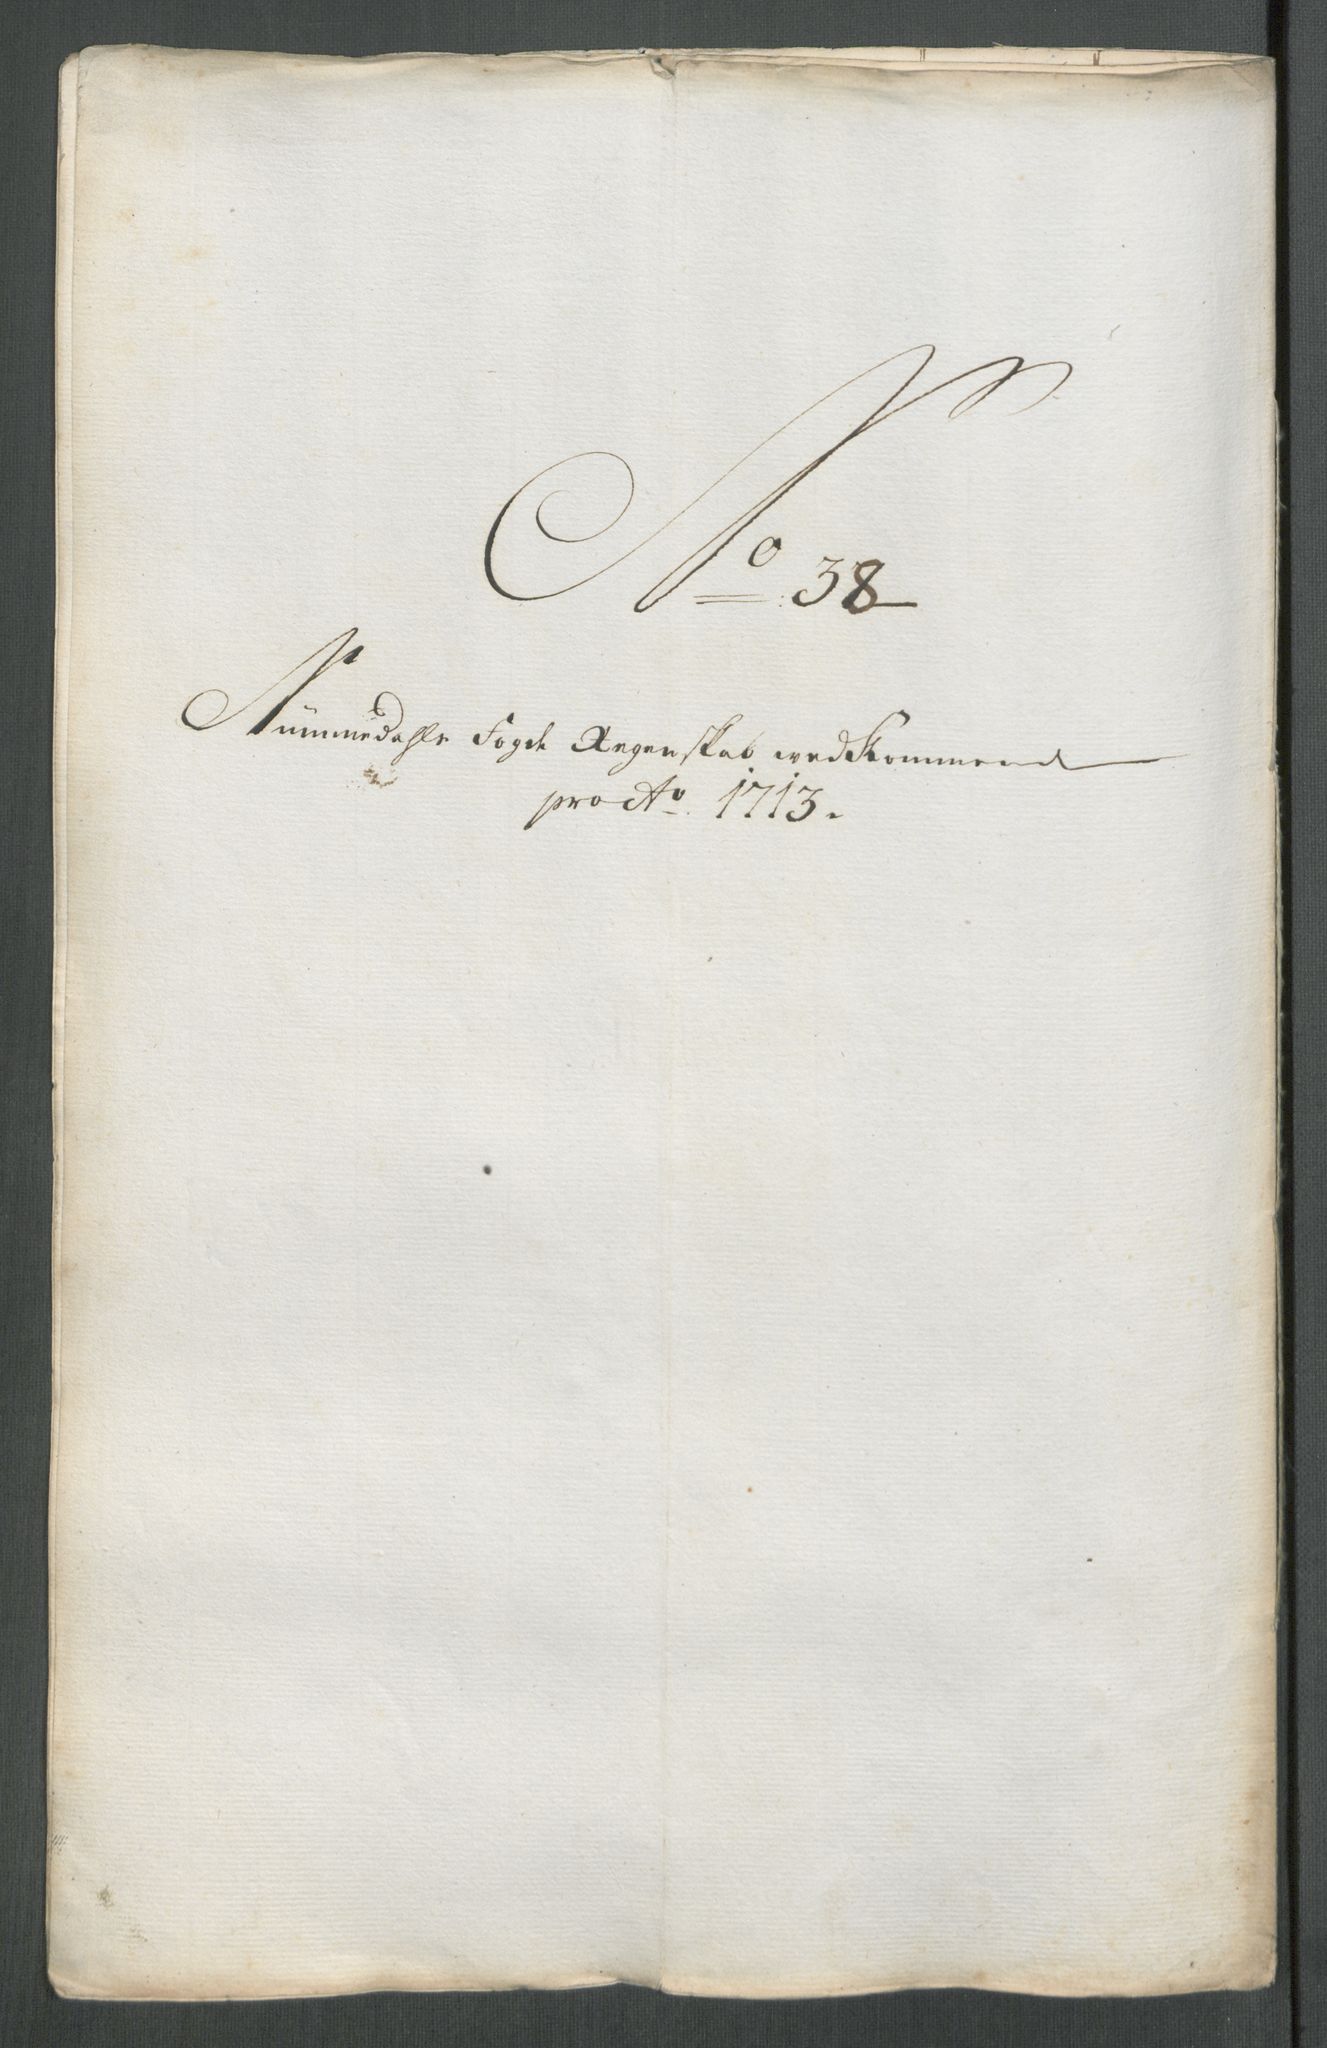 No 38
Nummedahls Fogde Regenskab vedkommend
pro Ao. 1713.